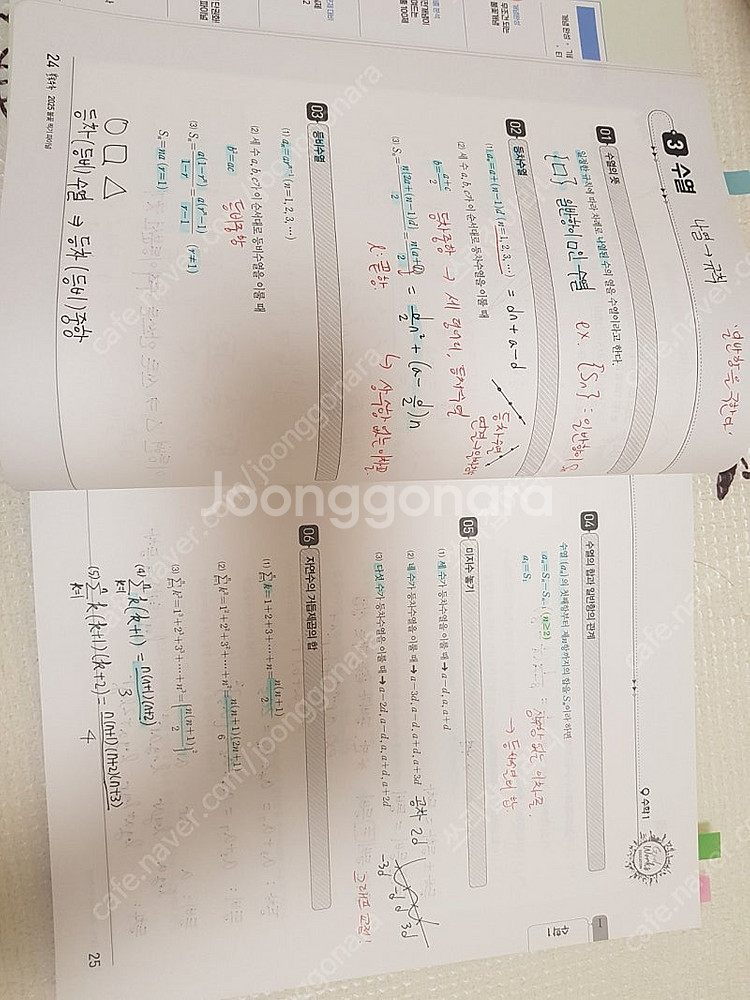 3 수열
나열 → 규칙
일반항을 구한다.
01 수열의 뜻
일정한 규칙에 따라 차례로 나열된 수의 열을 수열이라고 한다.
일반항이 □인 수열
ex. {Sn} : 일반항이 Sn
02 등차수열
(1) aₙ=a+(n-1)d (n=1, 2, 3, ⋯) = dn + a-d
등차수열
(2) 세 수 a, b, c가 이 순서대로 등차수열을 이룰 때
b=(a+c)/2 등차중항 → 세 점이, 등차수열
(3) Sₙ=n{2a+(n-1)d}/2=n(a+l)/2 = d/2 n² + (a-d/2)n
l : 끝항
↳ 상수항 없는 이차식
03 등비수열
(1) aₙ=arⁿ⁻¹ (n=1, 2, 3, ⋯)
(2) 세 수 a, b, c가 이 순서대로 등비수열을 이룰 때
b²=ac 등비중항
(3) Sₙ=a(1-rⁿ)/(1-r)=a(rⁿ-1)/(r-1) (r≠1)
Sₙ=na (r=1)
○ □ △
등차(등비)수열 ⇒ 등차(등비)중항
24
2025
수학 I
04 수열의 합과 일반항의 관계
수열 {aₙ}의 첫째항부터 제n항까지의 합을 Sₙ이라 하면
aₙ=Sₙ-Sₙ₋₁ (n≥2)
a₁=S₁
상수항 없는 이차식
→ 등차수열의 합
05 미지수 놓기
(1) 세 수가 등차수열을 이룰 때 → a-d, a, a+d
(2) 네 수가 등차수열을 이룰 때 → a-3d, a-d, a+d, a+3d 공차 2d
(3) 다섯 수가 등차수열을 이룰 때 → a-2d, a-d, a, a+d, a+2d
-3d -d d 3d
06 자연수의 거듭제곱의 합
(1) ∑k=1+2+3+⋯+n=n(n+1)/2
(2) ∑k²=1²+2²+3²+⋯+n²=n(n+1)(2n+1)/6
(3) ∑k³=1³+2³+3³+⋯+n³={n(n+1)/2}²
(4) ∑k(k+1) = n(n+1)(n+2)/3
(5) ∑k(k+1)(k+2) = n(n+1)(n+2)(n+3)/4
25
Joonggonara
cafe.naver.com/joonggonara